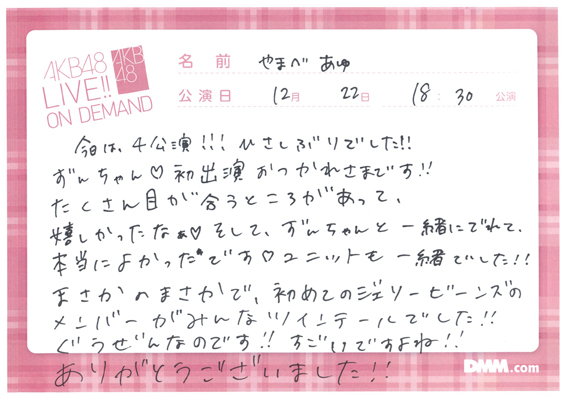 AKB48
LIVE!!
ON DEMAND
AKB
48
名前 やまべ あゆ
公演日 12月 22日 18:30 公演
今日は、4公演!!! ひさしぶりでした!!
ずんちゃん♡初出演おつかれさまです!!
たくさん目が合うところがあって、
嬉しかったなぁ♡そして、ずんちゃんと一緒にでれて、
本当によかったです♡ユニットも一緒でした!!
まさかのまさかで、初めてのジェリービーンズの
メンバーがみんなツインテールでした!!
ぐうぜんなのです!! すごいですよね!!
ありがとうございました!!
DMM.com